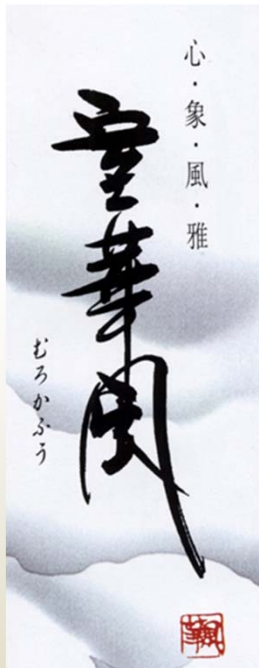 心・象・風・雅
室華風
むろかふう